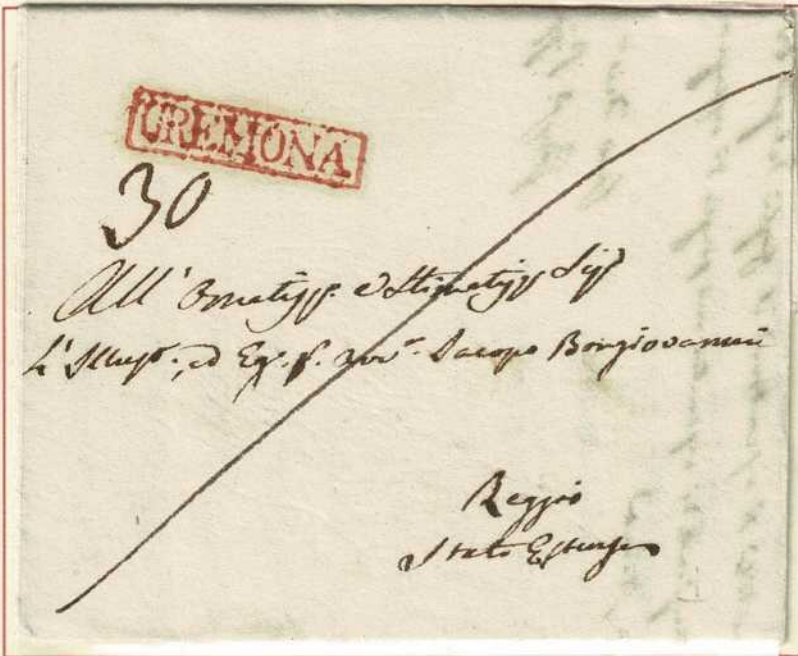 CREMONA
30
All' Ornatiss. e Stimatiss. Sig.
L'Illust. ed Eg. Jacopo Bongiovanni
Reggio
Stato Estense